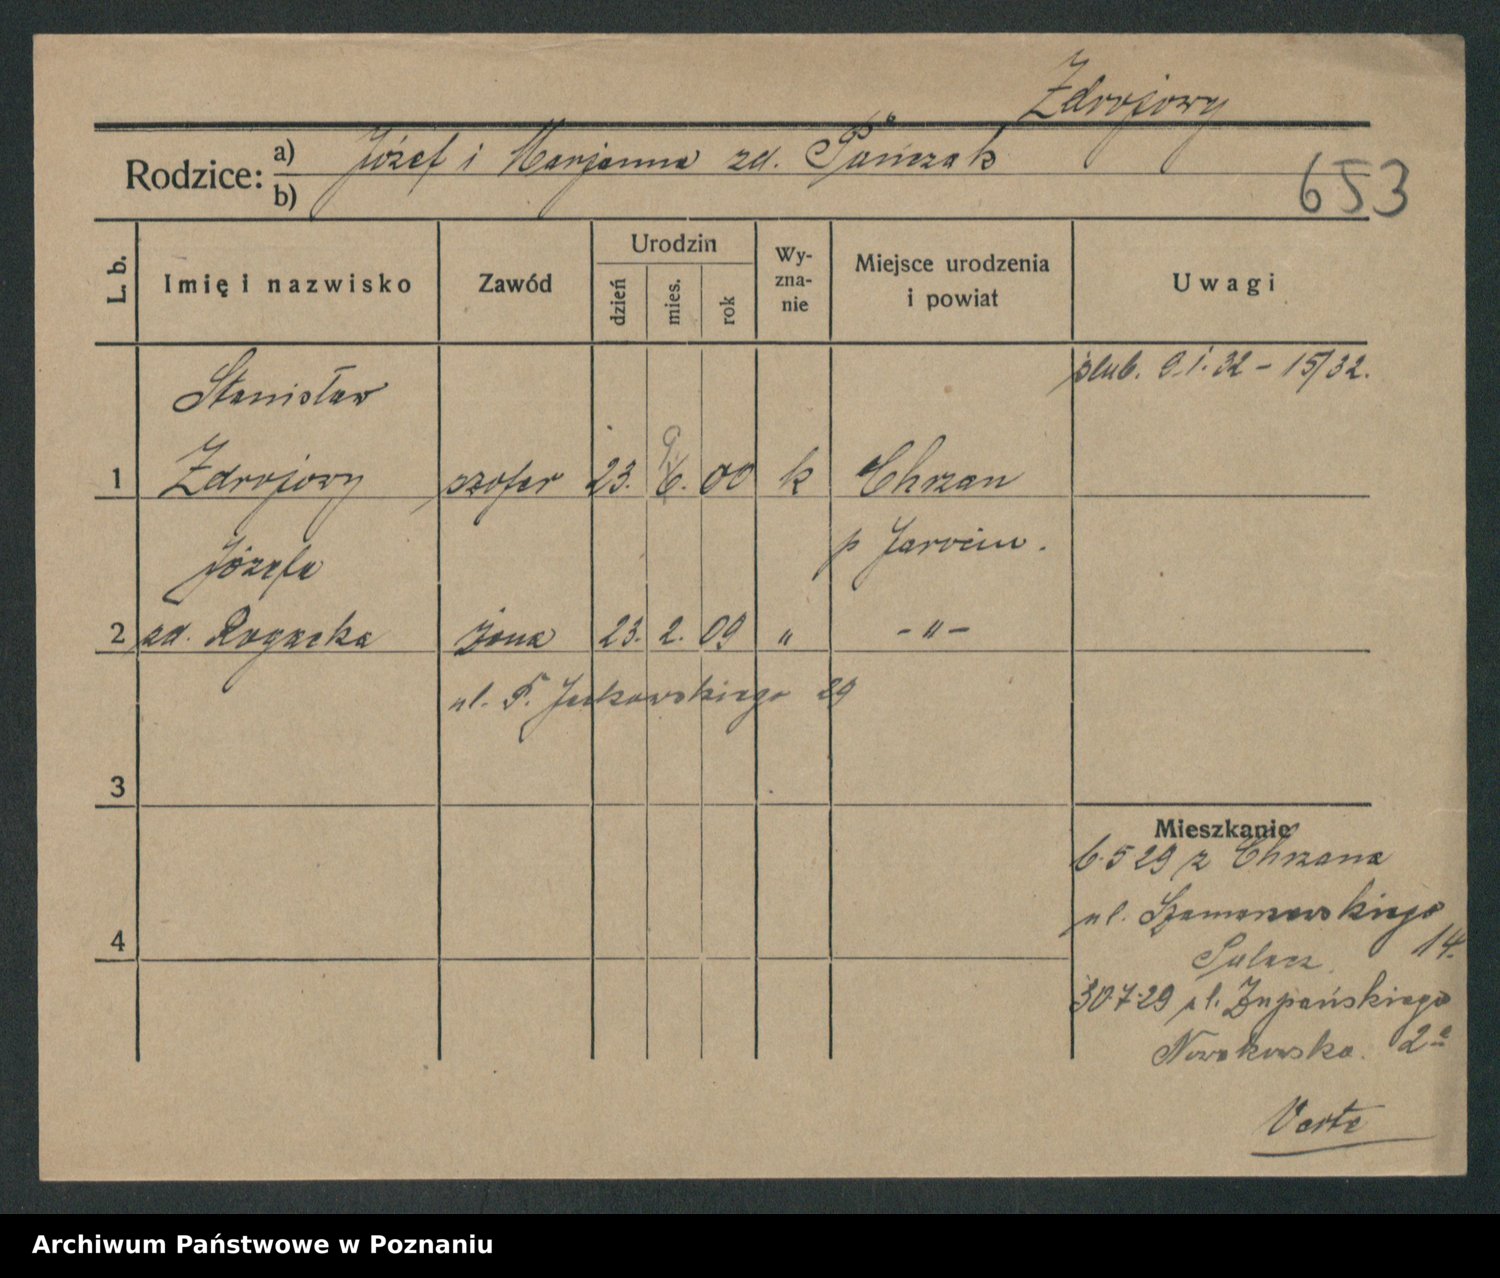 Zdrojowy
Rodzice: a) Józef i Marjanna zd. Pańczak
b)
653
L. b. Imię i nazwisko Zawód Urodzin dzień mies. rok Wy-zna-nie Miejsce urodzenia i powiat Uwagi
Stanisław ślub. 9.1.32 – 15/32.
1 Zdrojowy szofer 23. 6. 00 k Chrzan
9
Józefa p Jarocin.
2 zd. Rogacka żona 23. 2. 09 " – " –
ul. P. Jackowskiego 29
3
Mieszkanie
6.5 29 z Chrzana
4 ul. Szamarzewskiego
14.
30 7.29 ul. Żupańskiego
Nowakowska. 2a
Verte
Archiwum Państwowe w Poznaniu